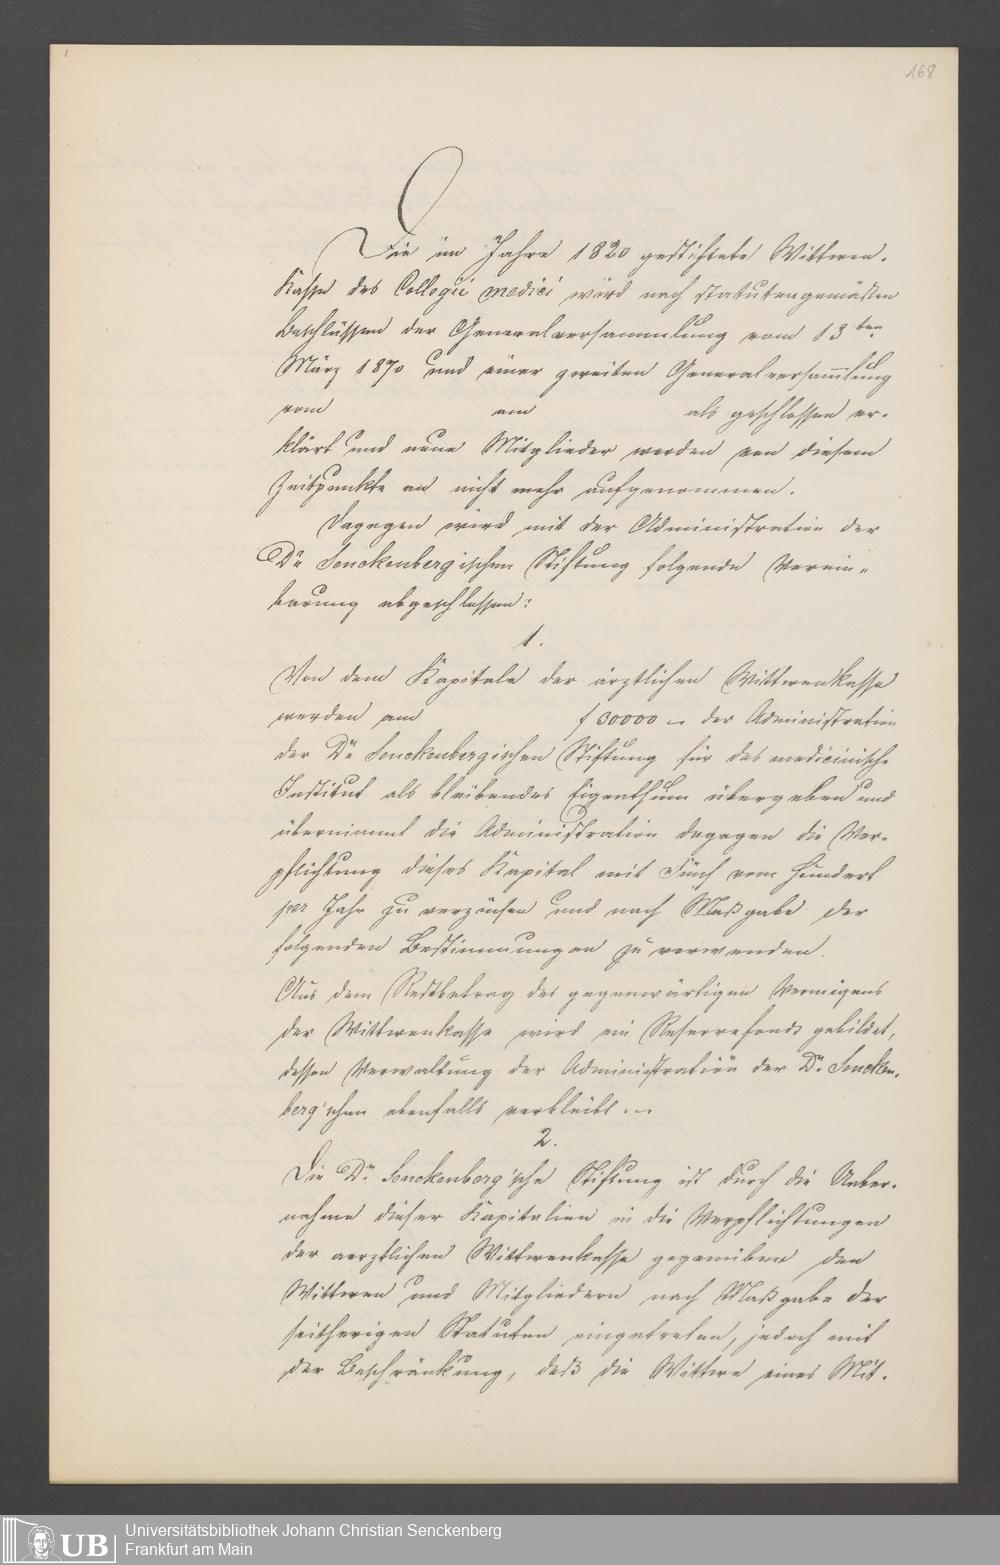 168
Die im Jahre 1820 gestiftete Wittwen-
Kasse des Collegii medici wird nach statutengemäßen
Beschlüssen der Generalversammlung vom 13ten
März 1870 und einer zweiten Generalversam̅lung
vom am als geschlossen er-
klärt und neue Mitglieder werden von diesem
Zeitpunkte an nicht mehr aufgenommen.
Dagegen wird mit der Administration der
Dr Senckenbergischen Stiftung folgende Verein-
barung abgeschlossen:
1.
Von dem Kapitale der ärztlichen Wittwenkasse
werden am f 30000 — der Administration
der Dr Senckenbergischen Stiftung für das medicinische
Institut als bleibendes Eigenthum übergeben und
übernimmt die Administration dagegen die Ver-
pflichtung dieses Kapital mit Fünf vom Hundert
per Jahr zu verzinsen und nach Maßgabe der
folgenden Bestimmungen zu verwenden.
Aus dem Restbetrag des gegenwärtigen Vermögens
der Wittwenkasse wird ein Reservefonds gebildet,
dessen Verwaltung der Administration der Dr. Sencken-
berg'schen ebenfalls verbleibt. —
2.
Die Dr. Senckenberg'sche Stiftung ist durch die Ueber-
nahme dieser Kapitalien in die Verpflichtungen
der aerztlichen Wittwenkasse gegenüber den
Wittwen und Mitgliedern nach Maßgabe der
seitherigen Statuten eingetreten, jedoch mit
der Beschränkung, daß die Wittwe eines Mit-
UB
Universitätsbibliothek Johann Christian Senckenberg
Frankfurt am Main